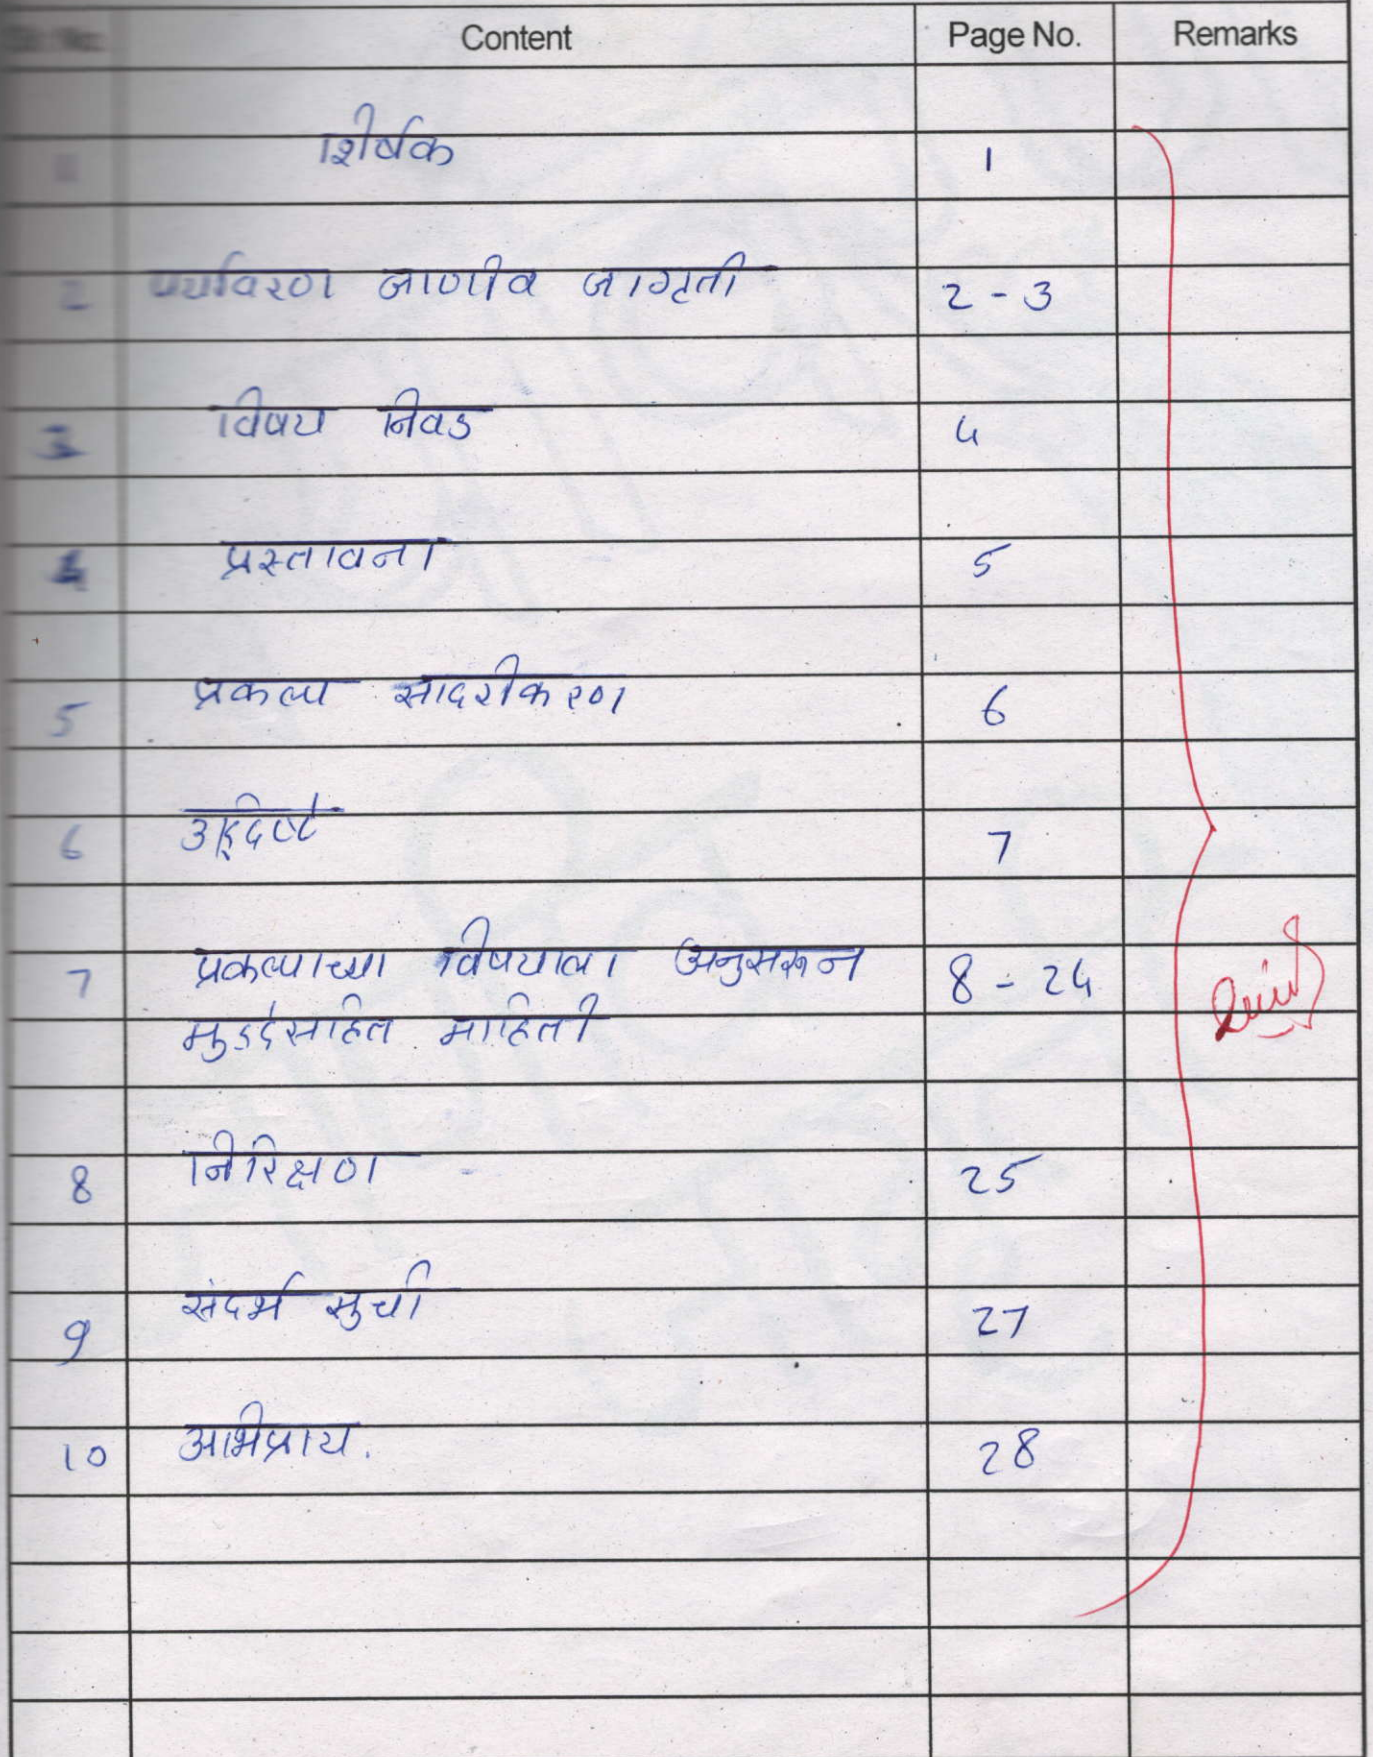 Content Page No. Remarks
शिर्षक 1
2 पर्यावरण जाणीव जागृती 2 - 3
3 विषय निवड 4
4 प्रस्तावना 5
5 प्रकल्प सादरीकरण 6
6 उद्दिष्टे 7
7 प्रकल्पाच्या विषयाला अनुसरून 8 - 24
मुद्देसहित माहिती
8 निरिक्षण 25
9 संदर्भ सुची 27
10 अभिप्राय. 28